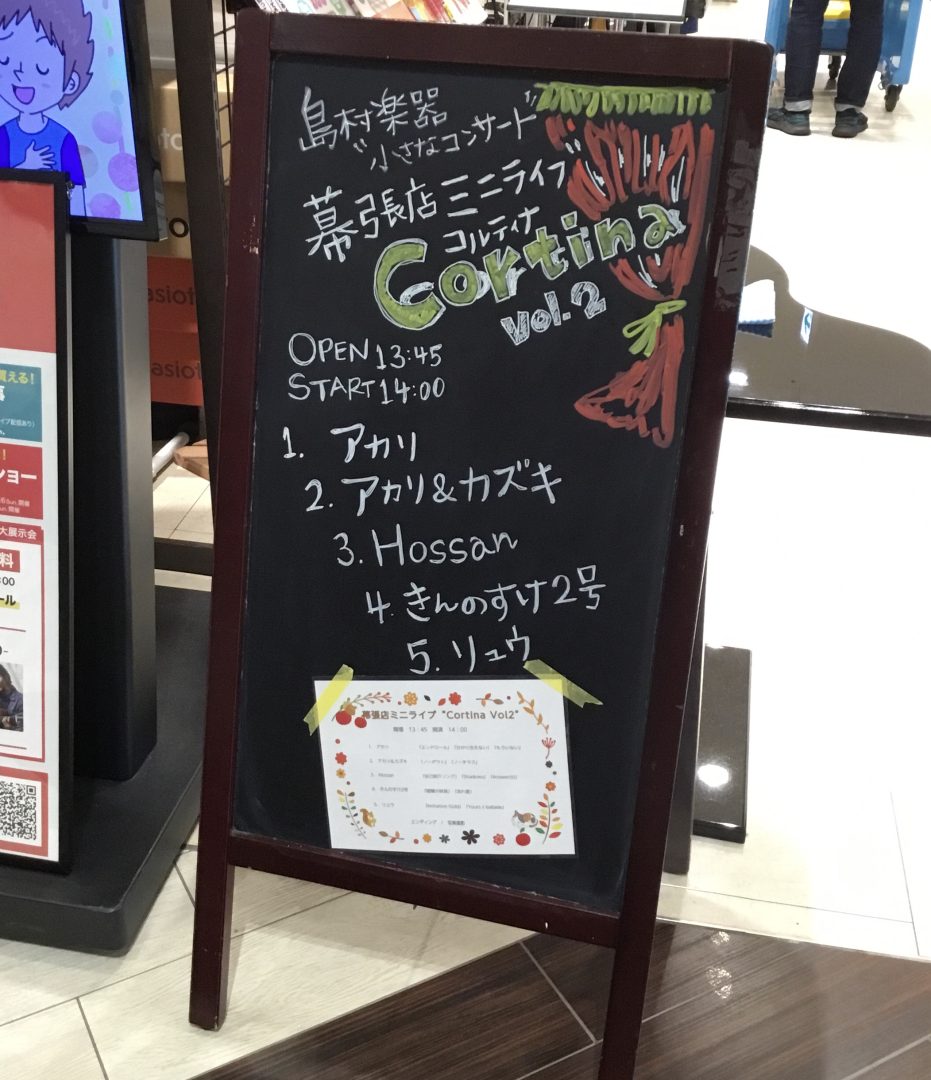 島村楽器
"小さなコンサート"
幕張店ミニライブ
コルティナ
Cortina
vol.2
OPEN 13:45
START 14:00
1. アカリ
2. アカリ&カズキ
3. Hossan
4. きんのすけ2号
5. リュウ
幕張店ミニライブ "Cortina Vol2"
開場 13:45 開演 14:00
1. アカリ
2. アカリ&カズキ
3. Hossan
4. きんのすけ2号
5. リュウ
エンディング / 写真撮影
買える!
ショー
大展示会
料
ール
asiot
asiot